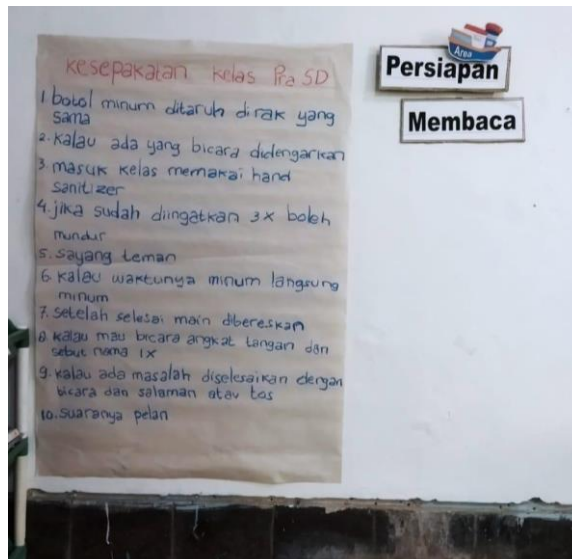 Kesepakatan kelas Pra SD
1. botol minum ditaruh dirak yang
sama
2. Kalau ada yang bicara didengarkan
3. masuk kelas memakai hand
sanitizer
4. jika sudah diingatkan 3x boleh
mundur
5. sayang teman
6. kalau waktunya minum langsung
minum
7. setelah selesai main dibereskan
8. kalau mau bicara angkat tangan dan
sebut nama 1x
9. kalau ada masalah diselesaikan dengan
bicara dan salaman atau tos
10. suaranya pelan
Area
Persiapan
Membaca